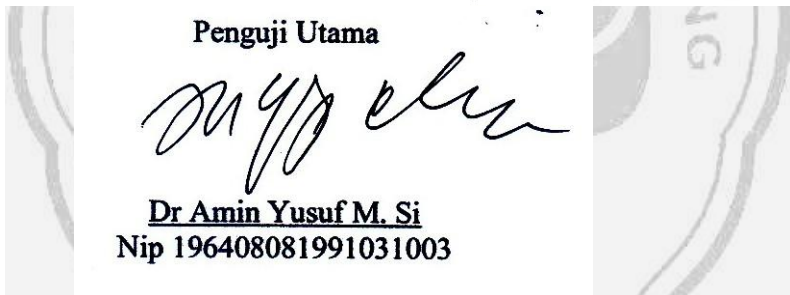 Penguji Utama
Dr Amin Yusuf M. Si
Nip 196408081991031003
NG